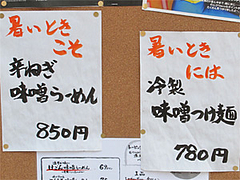 暑いとき
こそ
辛ねぎ
味噌らーめん
850円
暑いとき
には
冷製
味噌つけ麺
780円